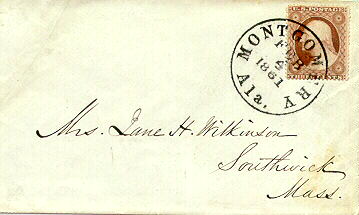 U.S. POSTAGE
MONTGOMERY
FEB
4
1861
Ala.
THREE CENTS
Mrs. Jane H. Wilkinson
Southwick
Mass.